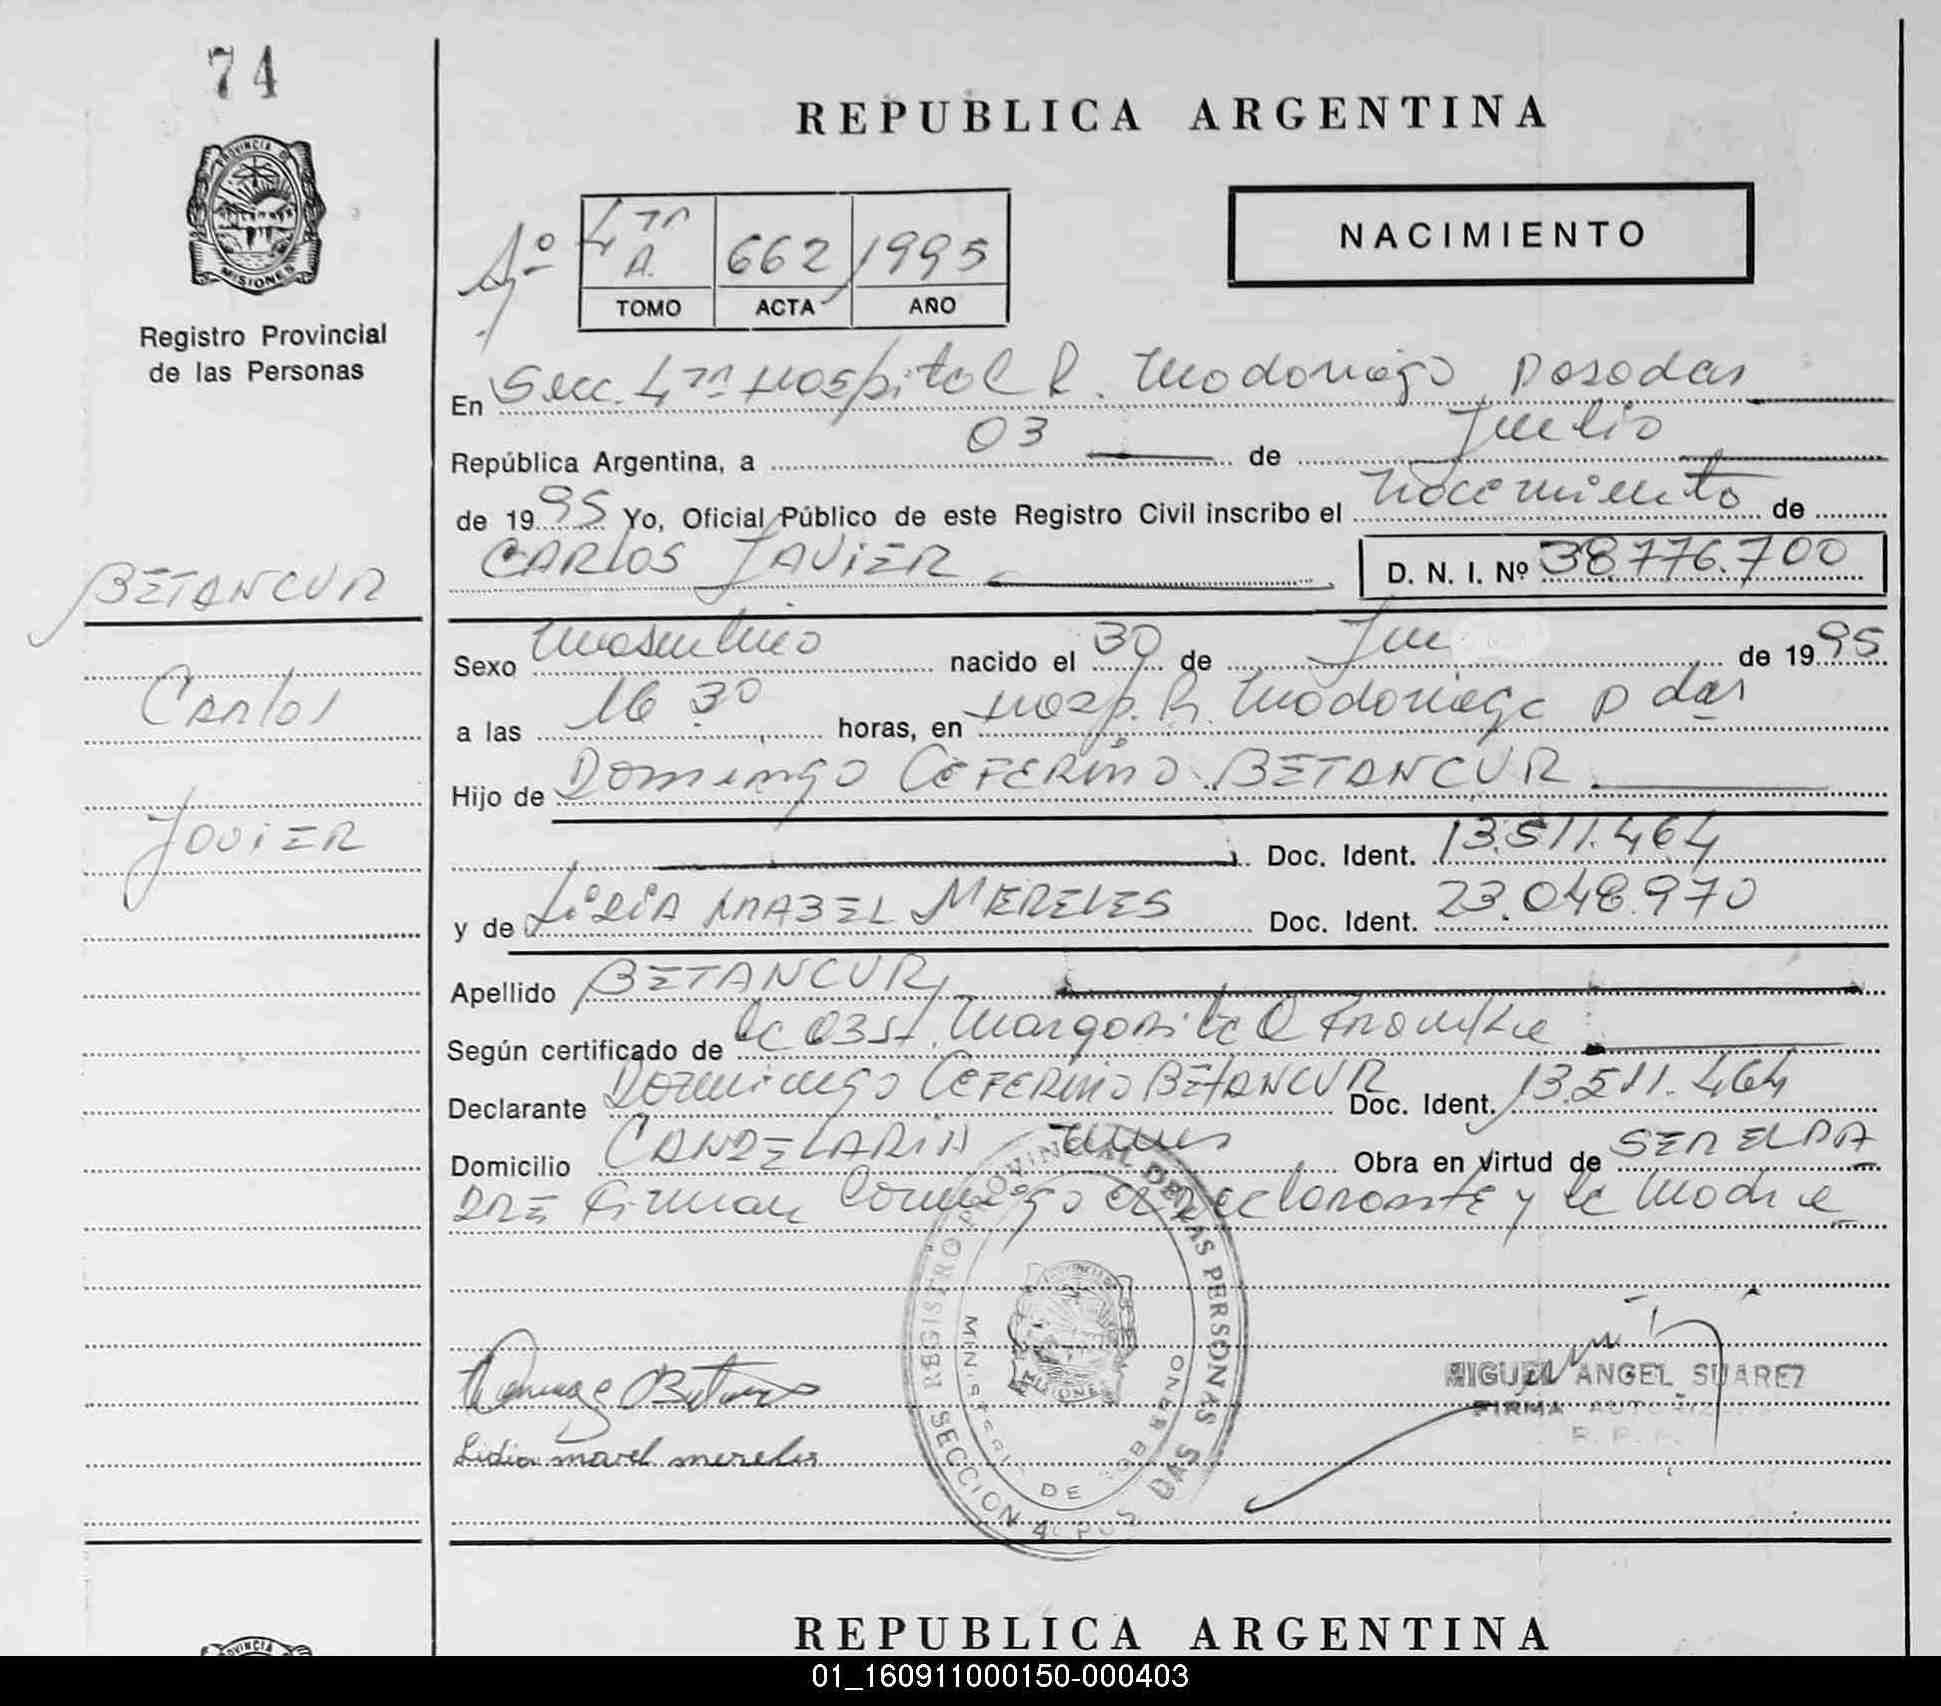 74
REPUBLICA ARGENTINA
PROVINCIA DE
MISIONES
Registro Provincial
de las Personas
4ta A. 662 1995
TOMO ACTA AÑO
NACIMIENTO
En Secc. 4ta Hospital R. Madariaga Posadas
República Argentina, a 03 de Julio
de 1995 Yo, Oficial Público de este Registro Civil inscribo el Nacimiento de
CARLOS JAVIER D. N. I. Nº 38.776.700
BETANCUR
Carlos
JAVIER
Sexo Masculino nacido el 30 de Jun de 1995
a las 16 30 horas, en Hosp. R. Madariaga Pdas
Hijo de Domingo CEFERINO BETANCUR
Doc. Ident. 13.511.464
y de LIDIA MABEL MERELES Doc. Ident. 23.048.970
Apellido BETANCUR
Según certificado de la Obst. Margarita
Declarante Domingo CEFERINO BETANCUR Doc. Ident. 13.511.464
Domicilio CANDELARIA Mnes Obra en virtud de SER EL PA
DRE Firman Conmigo el declarante y la Madre
REGISTRO PROVINCIAL DE LAS PERSONAS
MINISTERIO DE GOBIERNO
SECCION 4
MISIONES
Lidia mavel mereles
MIGUEL ANGEL SUAREZ
FIRMA AUTORIZADA
R. P. P.
PROVINCIA
REPUBLICA ARGENTINA
01_160911000150-000403